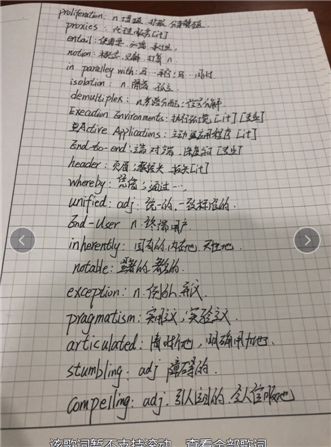 proliferation: n 增殖, 扩散, 分芽繁殖
proxies: 代理, 报关[it]
entail: 使需要
notion: 概念, 见解, 打算 n
in paralley with: 与…平行; 与…同时
isolation: n 隔离, 孤立
demultiplex: n. 多路分配; 信号分解
Execution Environments: 执行环境 [it]
Active Applications: 主动应用程序 [it]
End-to-end: 端对端
header: 页眉; 数据头 报头[it]
whereby: 凭借; 通过…
unified: adj: 统一的, 一致标准的.
End-User n. 终端用户
inherently: 固有的 内在地. 天性地.
notable: 显著的 著名的.
exception: n. 例外, 异议.
pragmatism: 实用主义, 实验主义.
articulated: 清晰地, 明确有力地.
stumbling: adj 障碍的
compelling: adj. 引人注目的, 令人信服地
该歌词暂不支持滚动 查看全部歌词